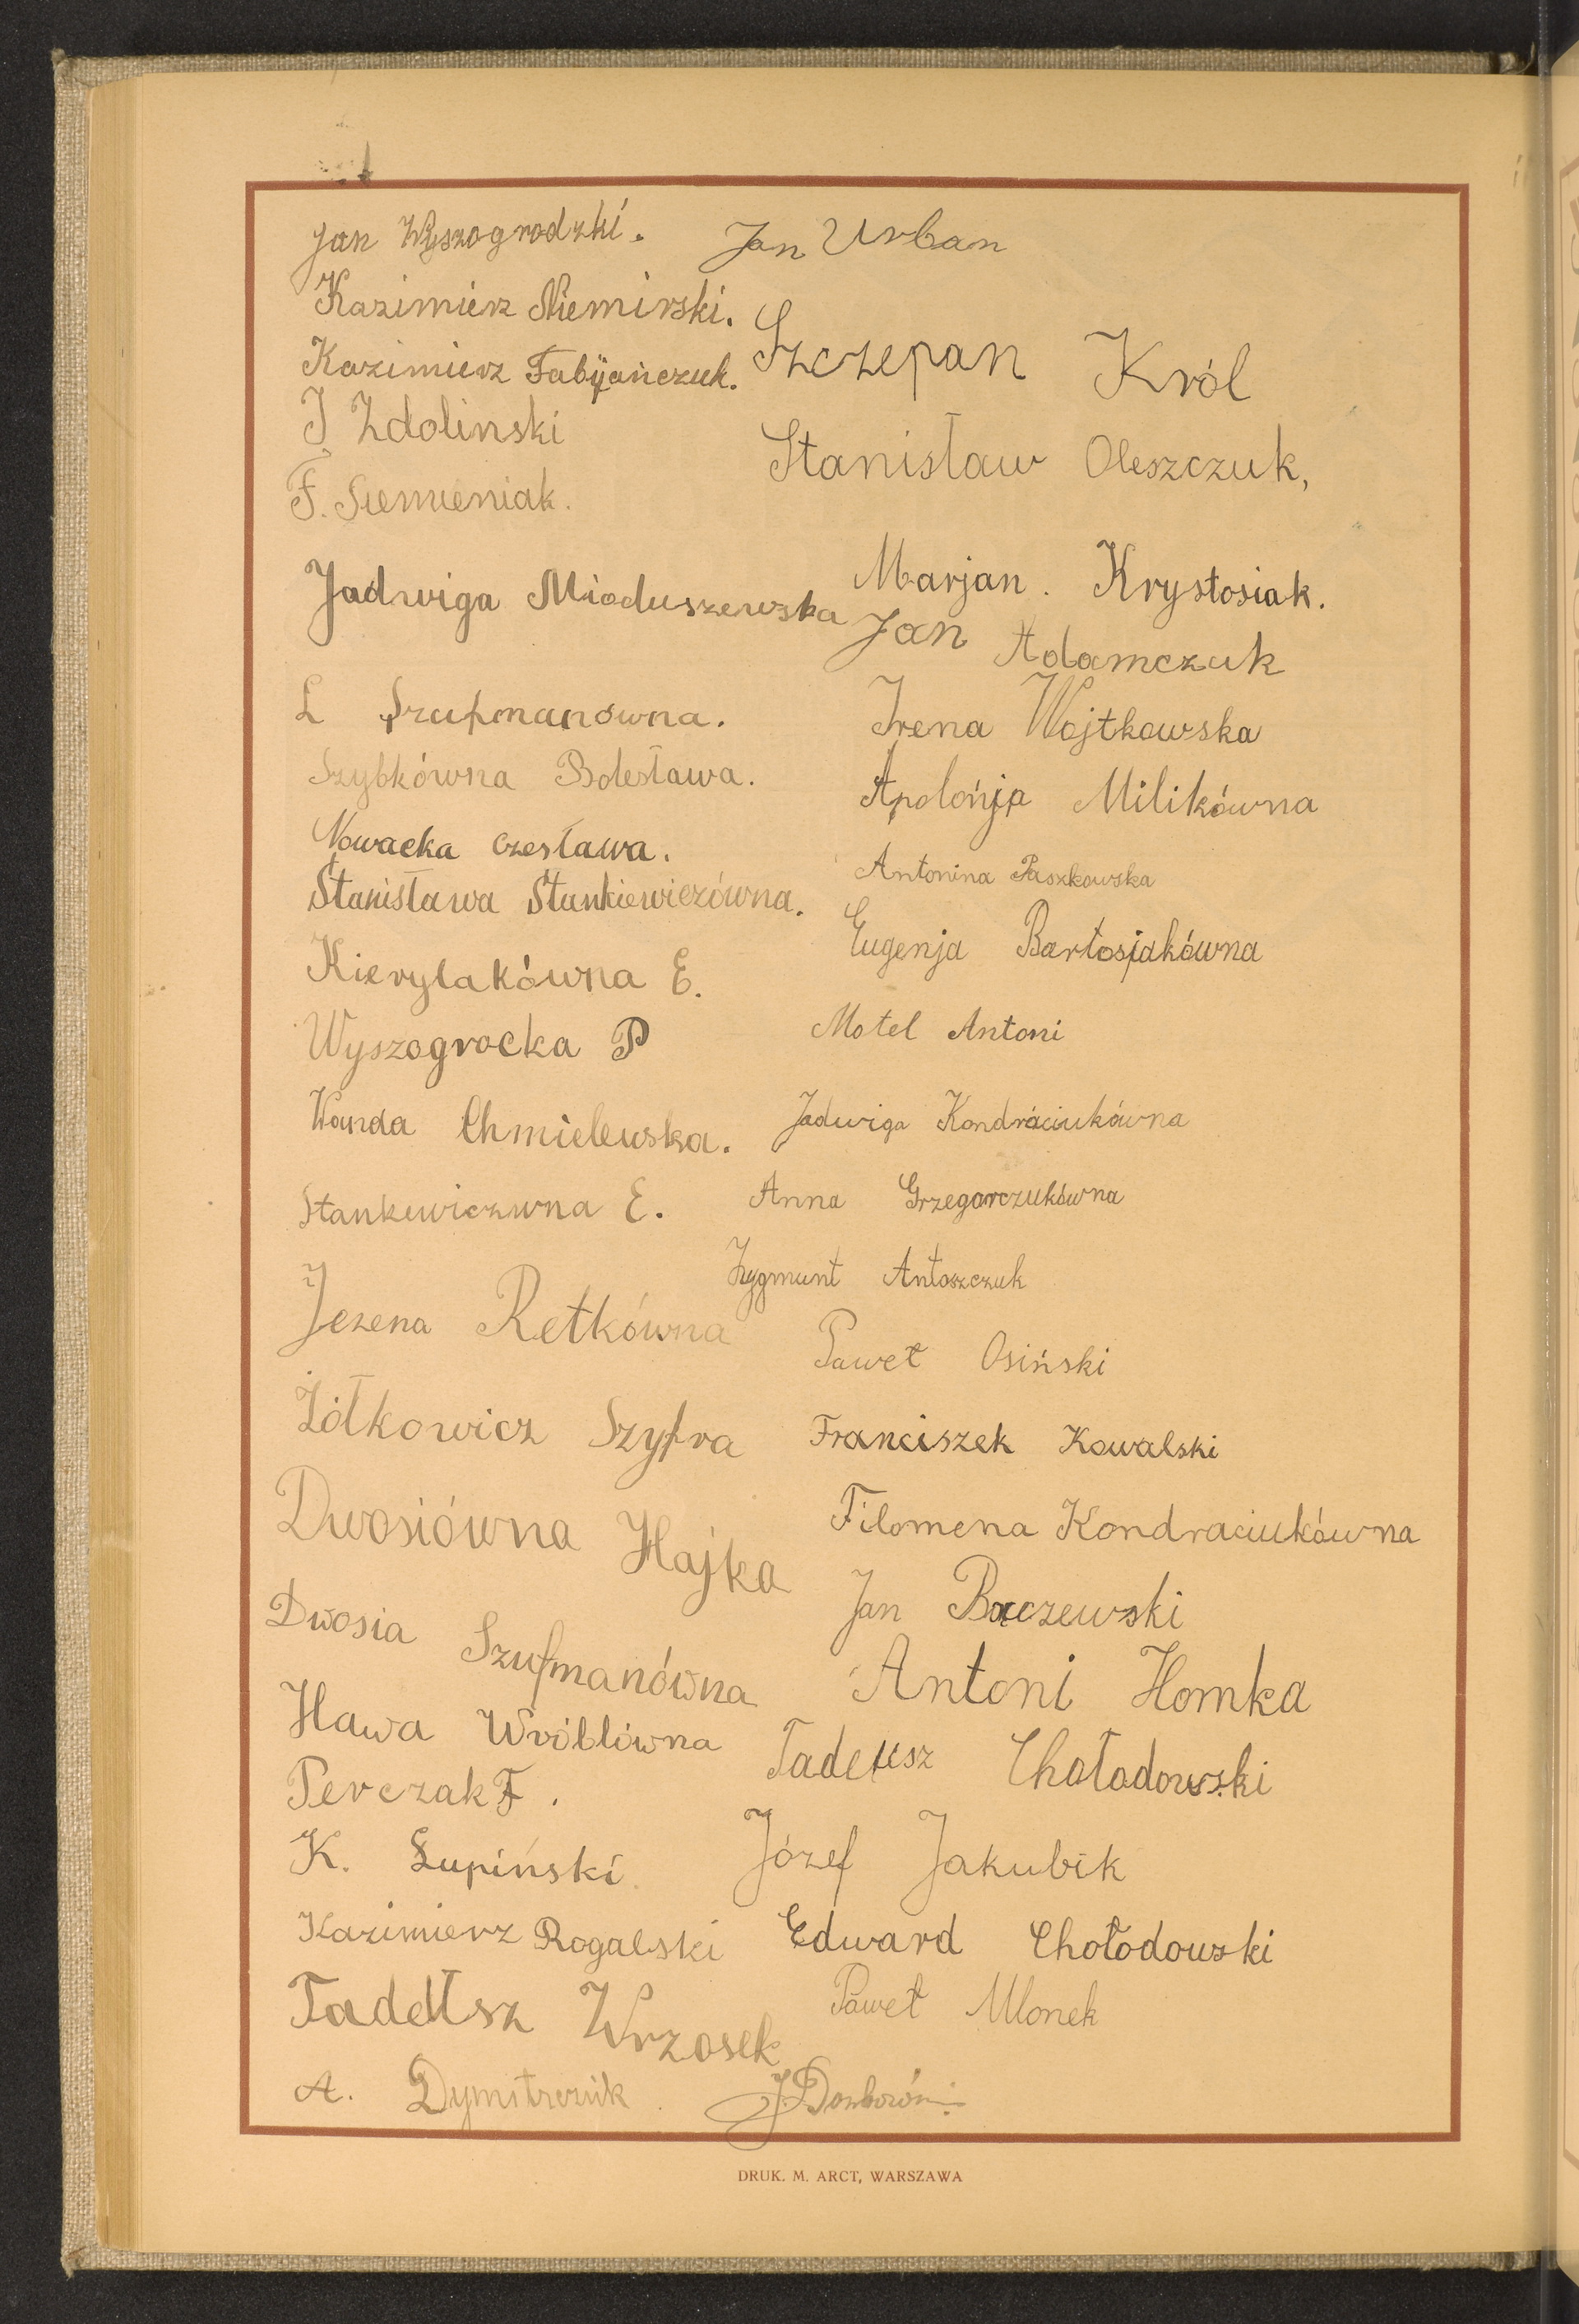 Jan Wyszogrodzki.
Kazimierz Niemirski.
Kazimierz Fabijańczuk.
J Zdolinski
F. Siemieniak.
Jadwiga Mioduszewska
L Szufmanówna.
Szybkówna Bolesława.
Nowacka Czesława.
Stanisława Stankiewiczówna.
Kierylakówna E.
Wyszogrocka P
Wanda Chmielewska.
Stankiewiczwna E.
Jezena Retkówna
Żółkowicz Szyfra
Dwosiówna Hajka
Dwosia Szufmanówna
Hawa Wróblówna
Perczak F.
K. Łupiński.
Kazimierz Rogalski
Tadeusz Wrzosek
A. Dymitrzuik.
Jan Urban
Szczepan Król
Stanisław Oleszczuk,
Marjan. Krystosiak.
Jan Adamczuk
Irena Wojtkowska
Apolońja Milikówna
Antonina Paszkowska
Eugenja Bartosiakówna
Motel Antoni
Jadwiga Kondraciukówna
Anna Grzegorczukówna
Zygmunt Antoszczuk
Paweł Osiński
Franciszek Kowalski
Filomena Kondraciukówna
Jan Baczewski
Antoni Homka
Tadeusz Chołodowski
Józef Jakubik
Edward Chołodowski
Paweł Mlonek
DRUK. M. ARCT, WARSZAWA